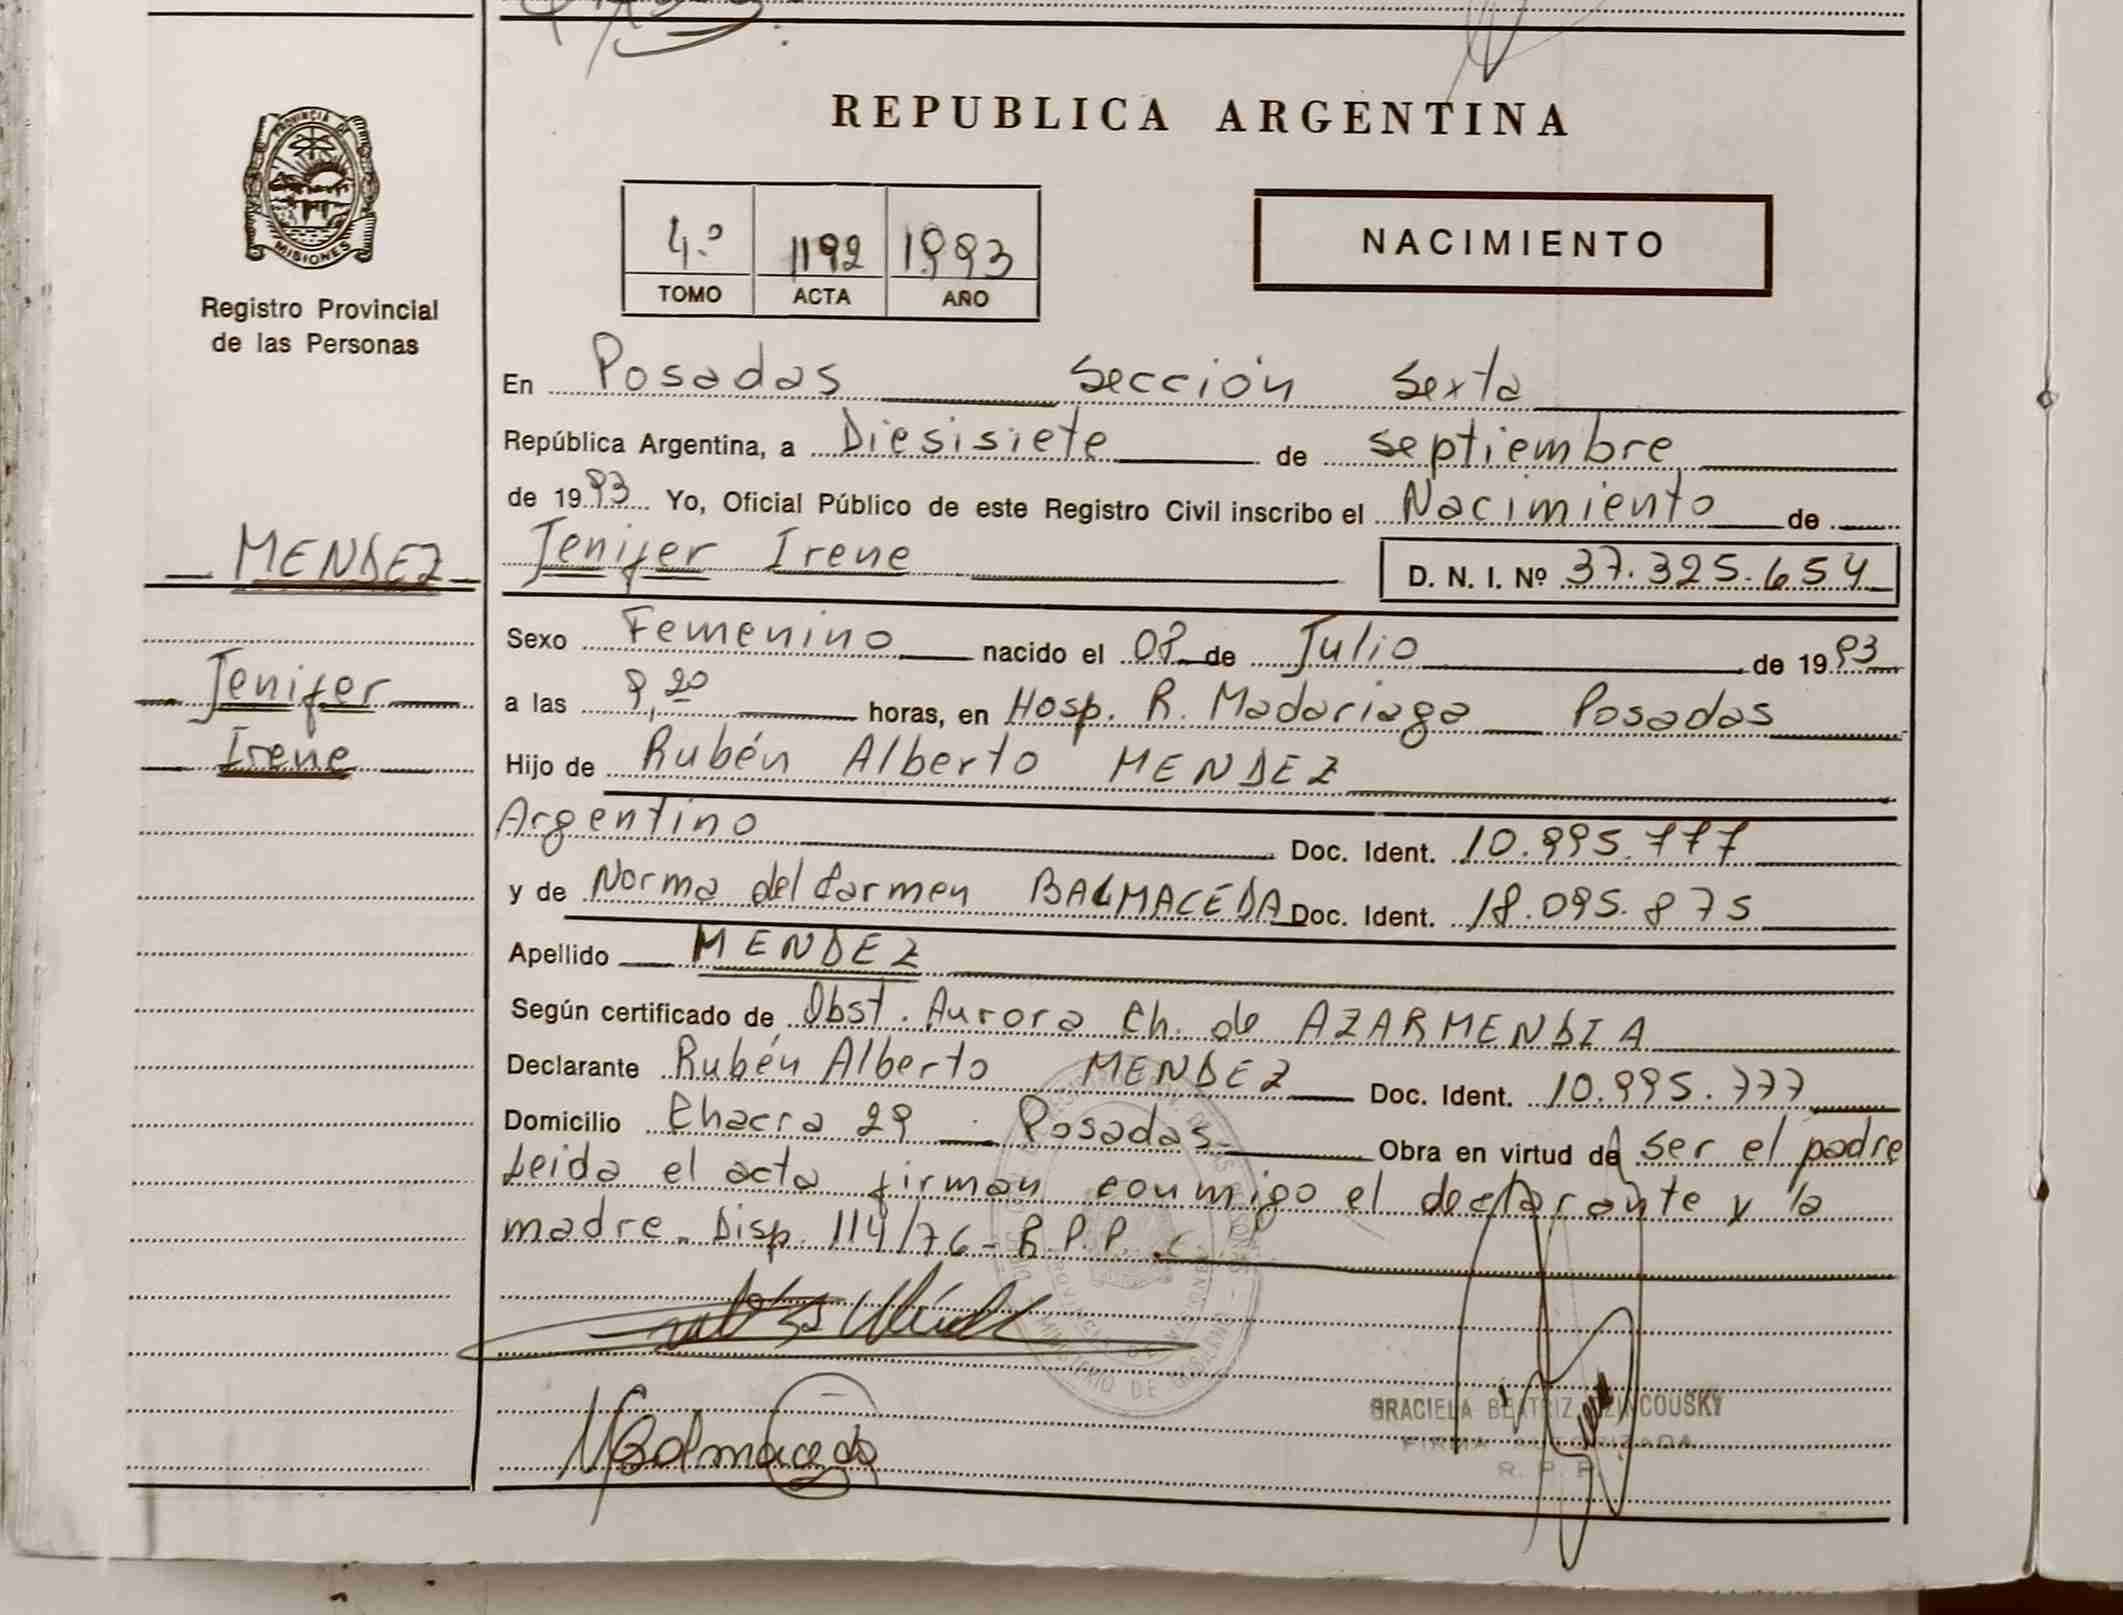 REPUBLICA ARGENTINA
PROVINCIA DE
MISIONES
Registro Provincial
de las Personas
4.º 1192 1993
TOMO ACTA AÑO
NACIMIENTO
En Posadas Sección Sexta
República Argentina, a Diesisiete de septiembre
de 1993 Yo, Oficial Público de este Registro Civil inscribo el Nacimiento de
MENDEZ
Jenifer Irene D. N. I. Nº 37.325.654
Sexo Femenino nacido el 08 de Julio de 1993
Jenifer
a las 9,20 horas, en Hosp. R. Madariaga Posadas
Irene
Hijo de Rubén Alberto MENDEZ
Argentino Doc. Ident. 10.995.777
y de Norma del Carmen BALMACEDA Doc. Ident. 18.095.875
Apellido MENDEZ
Según certificado de Obst. Aurora Ch. de AZARMENDIA
Declarante Rubén Alberto MENDEZ Doc. Ident. 10.995.777
Domicilio Chacra 29 Posadas Obra en virtud de ser el padre
Leida el acta firman conmigo el declarante y la
madre. Disp. 114/76 - R.P.P.
MINISTERIO DE GOBIERNO
NBalmaceda
GRACIELA BEATRIZ
FIRMA AUTORIZADA
R. P. P.